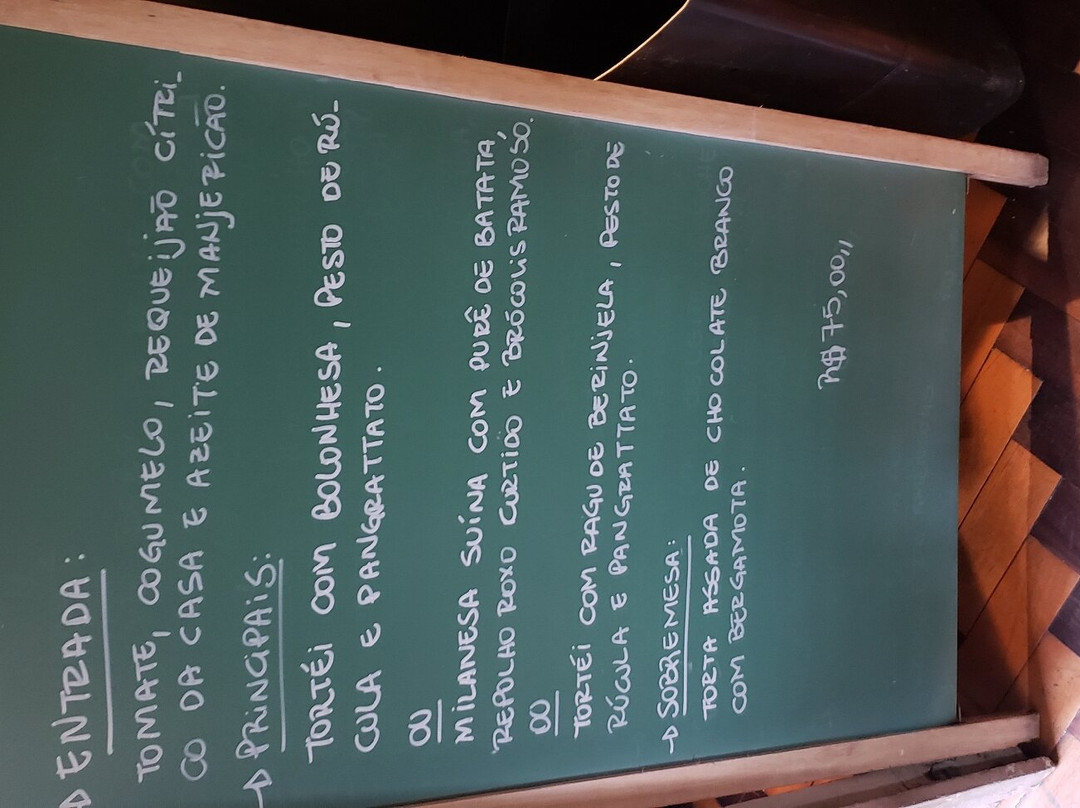 → ENTRADA:
TOMATE, COGUMELO, REQUEIJÃO CÍTRI-
CO DA CASA E AZEITE DE MANJERICÃO.
→ PRINCIPAIS:
TORTÉI COM BOLONHESA, PESTO DE RÚ-
CULA E PANGRATTATO.
OU
MILANESA SUÍNA COM PURÊ DE BATATA,
REPOLHO ROXO CURTIDO E BRÓCOLIS RAMOSO.
OU
TORTÉI COM RAGU DE BERINJELA, PESTO DE
RÚCULA E PANGRATTATO.
→ SOBREMESA:
TORTA ASSADA DE CHOCOLATE BRANCO
COM BERGAMOTA.
R$75,00,,